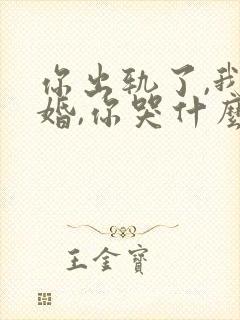 你出轨了,我
婚,你哭什麼
王金寶